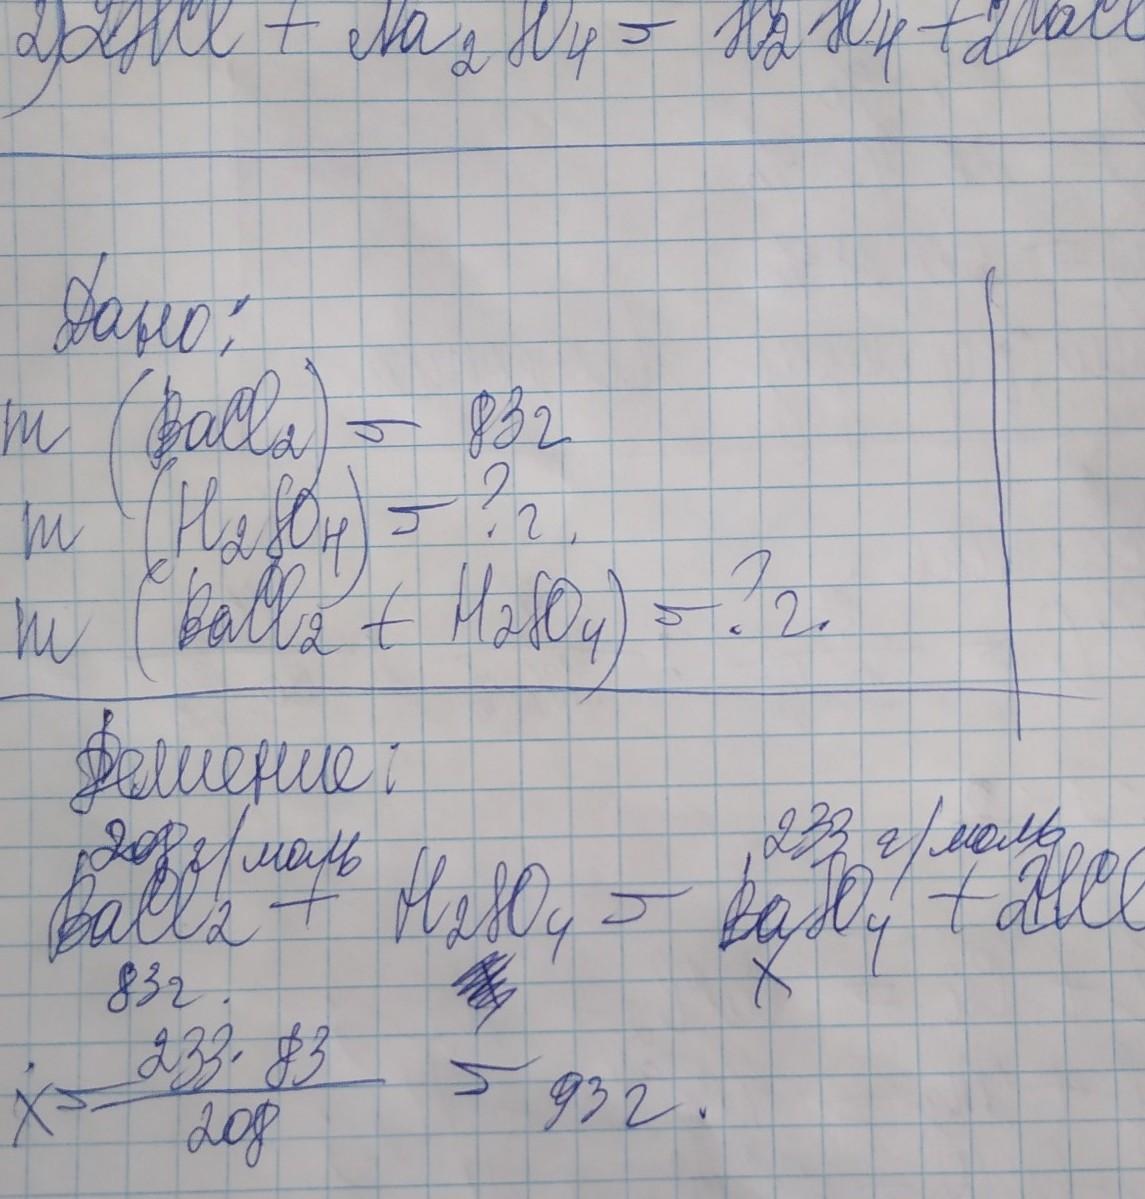 2) 2HCl + Na₂SO₄ = H₂SO₄ + 2NaCl
Дано:
m (BaCl₂) = 83г
m (H₂SO₄) = ? г.
m (BaCl₂ + H₂SO₄) = ? г.
Решение:
208 г/моль 233 г/моль
BaCl₂ + H₂SO₄ = BaSO₄ + 2HCl
83г. x
x = 233 · 83 / 208 = 93 г.